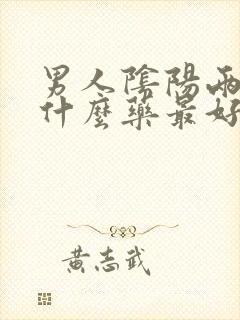 男人陰陽兩
什麼藥最好
黃志武